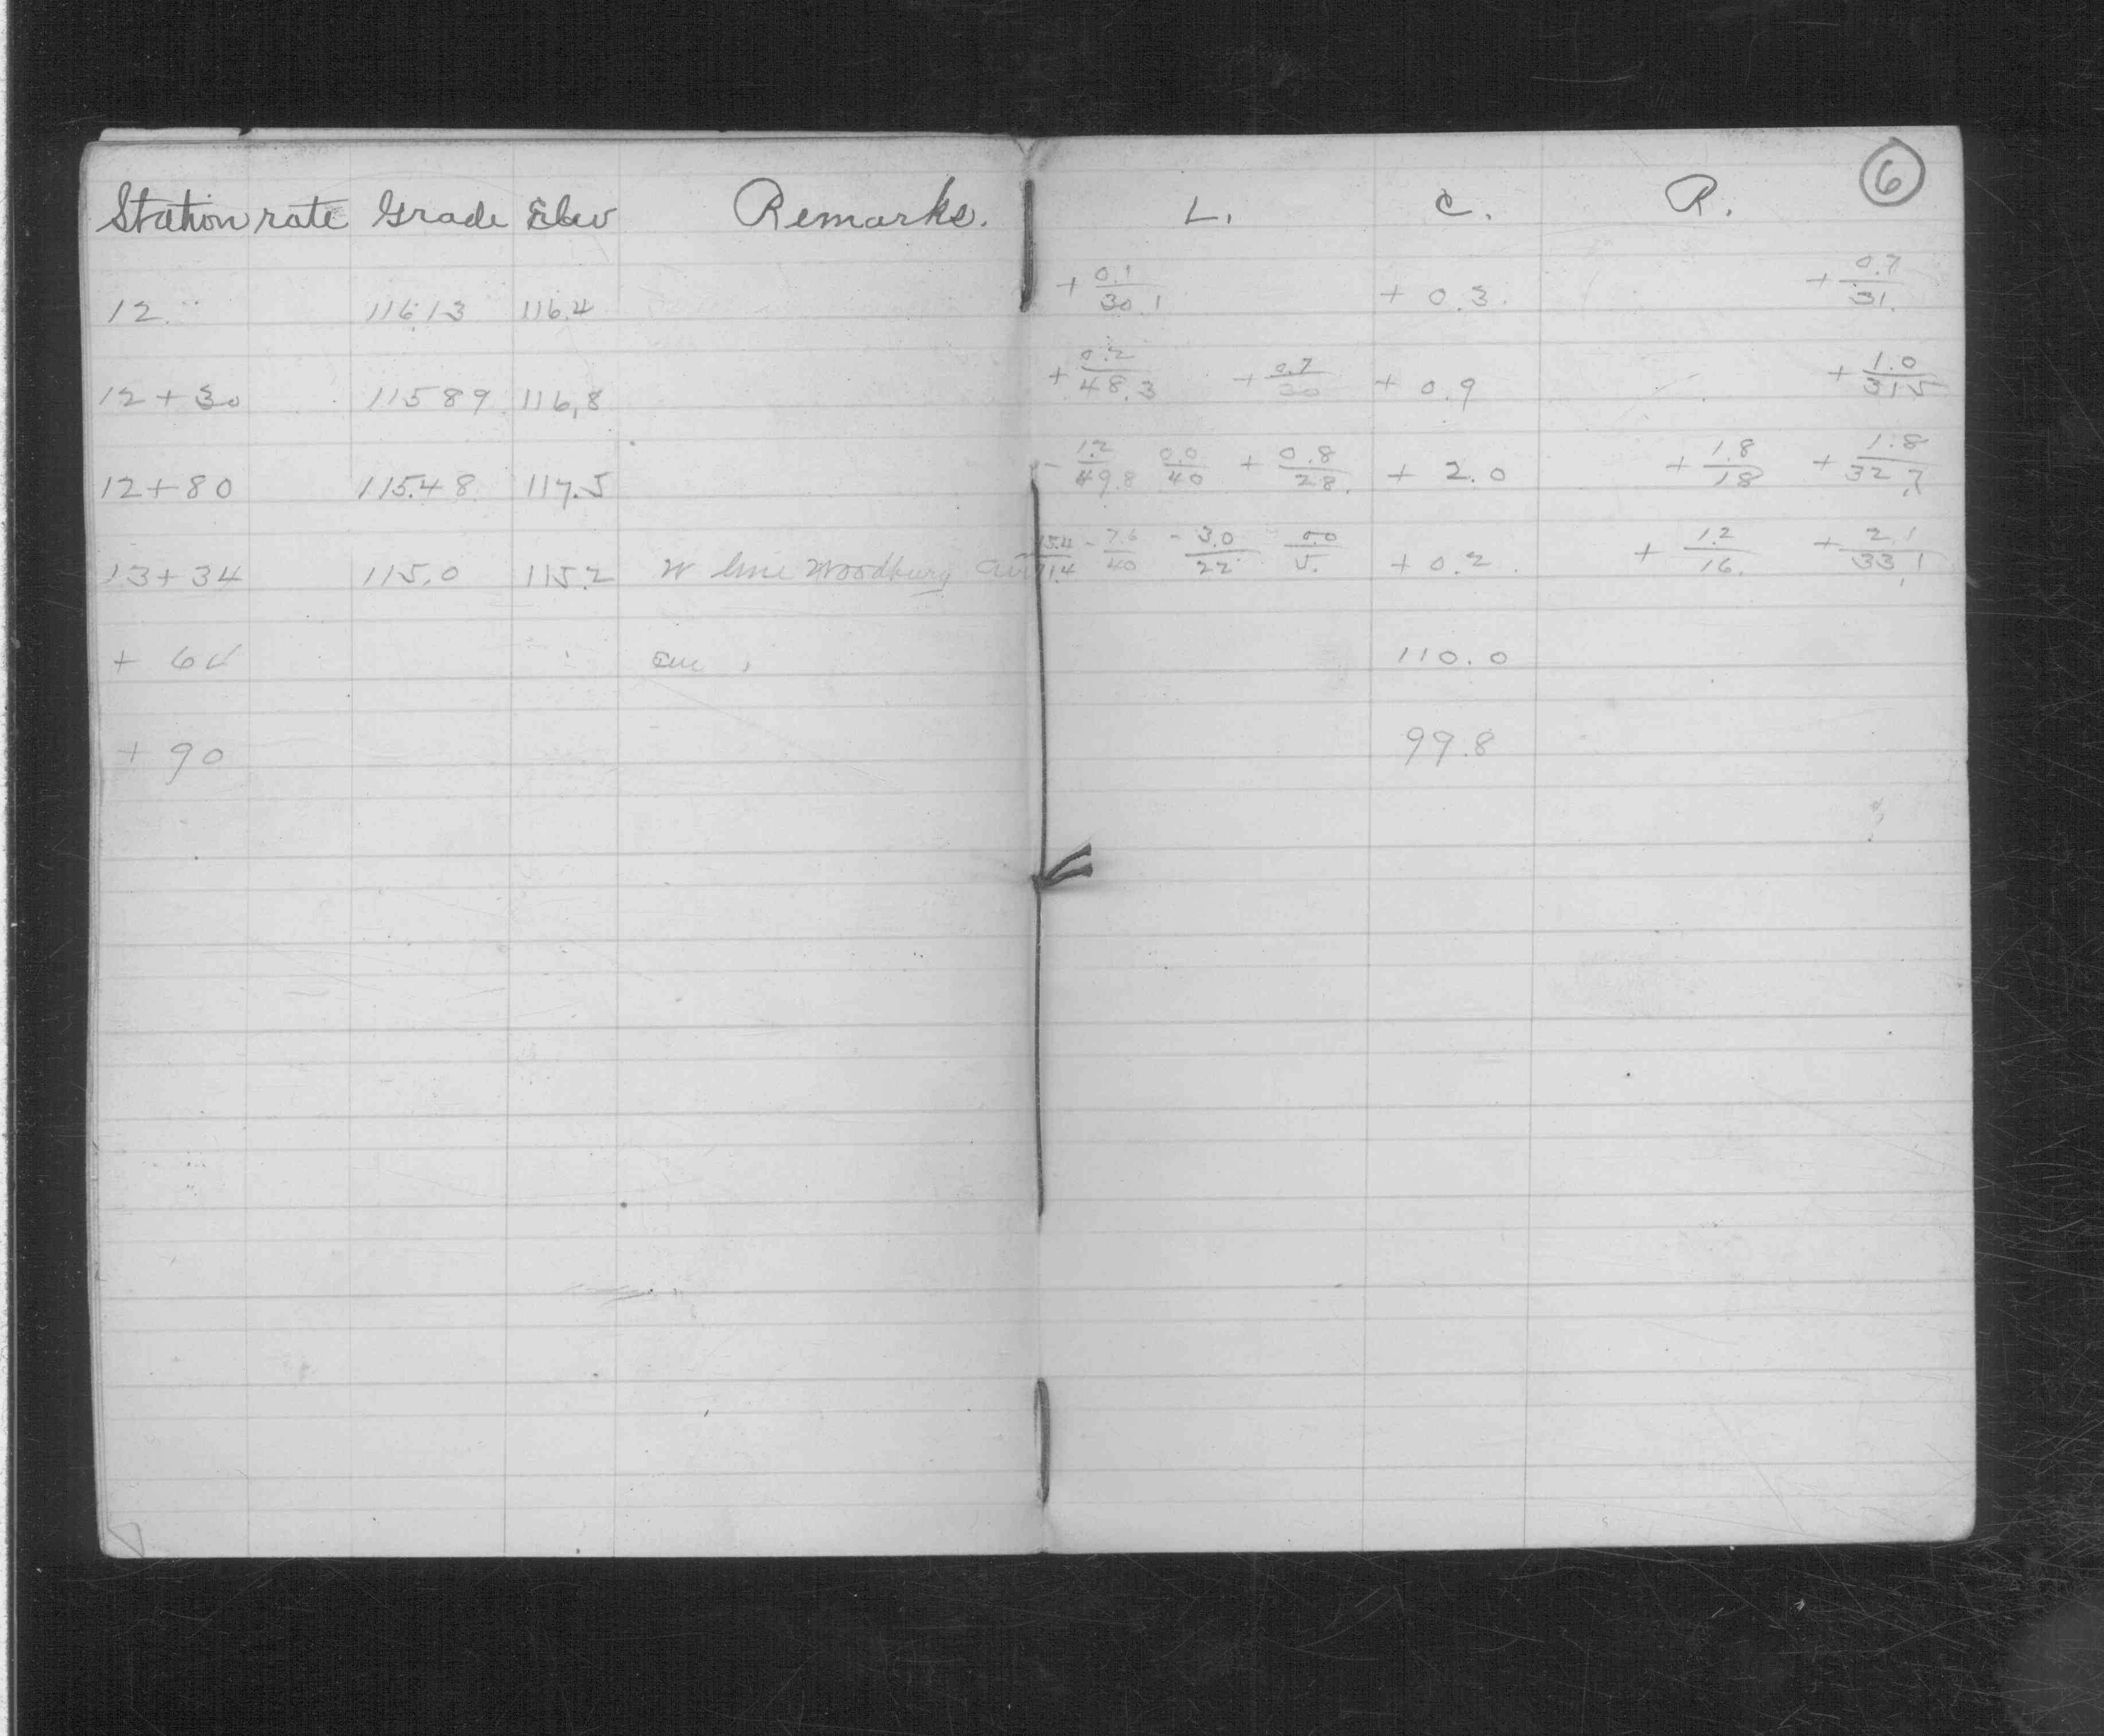 6
Station rate Grade Elev Remarks. L. C. R.
12. 116.13 116.4 + 0.1/30.1 + 0.3. + 0.7/31.
12 + 30 115 89 116.8 + 0.2/48.3 + 0.7/30 + 0.9 + 1.0/31.5
12 + 80 115.48 117.5 - 1.2/49.8 0.0/40 + 0.8/28. + 2.0 + 1.8/18 + 1.8/32.7
13 + 34 115.0 115.2 W line Woodbury 15.4/71.4 - 7.6/40 - 3.0/22 0.0/5. + 0.2. + 1.2/16. + 2.1/33.1
+ 110.0
+ 90 99.8